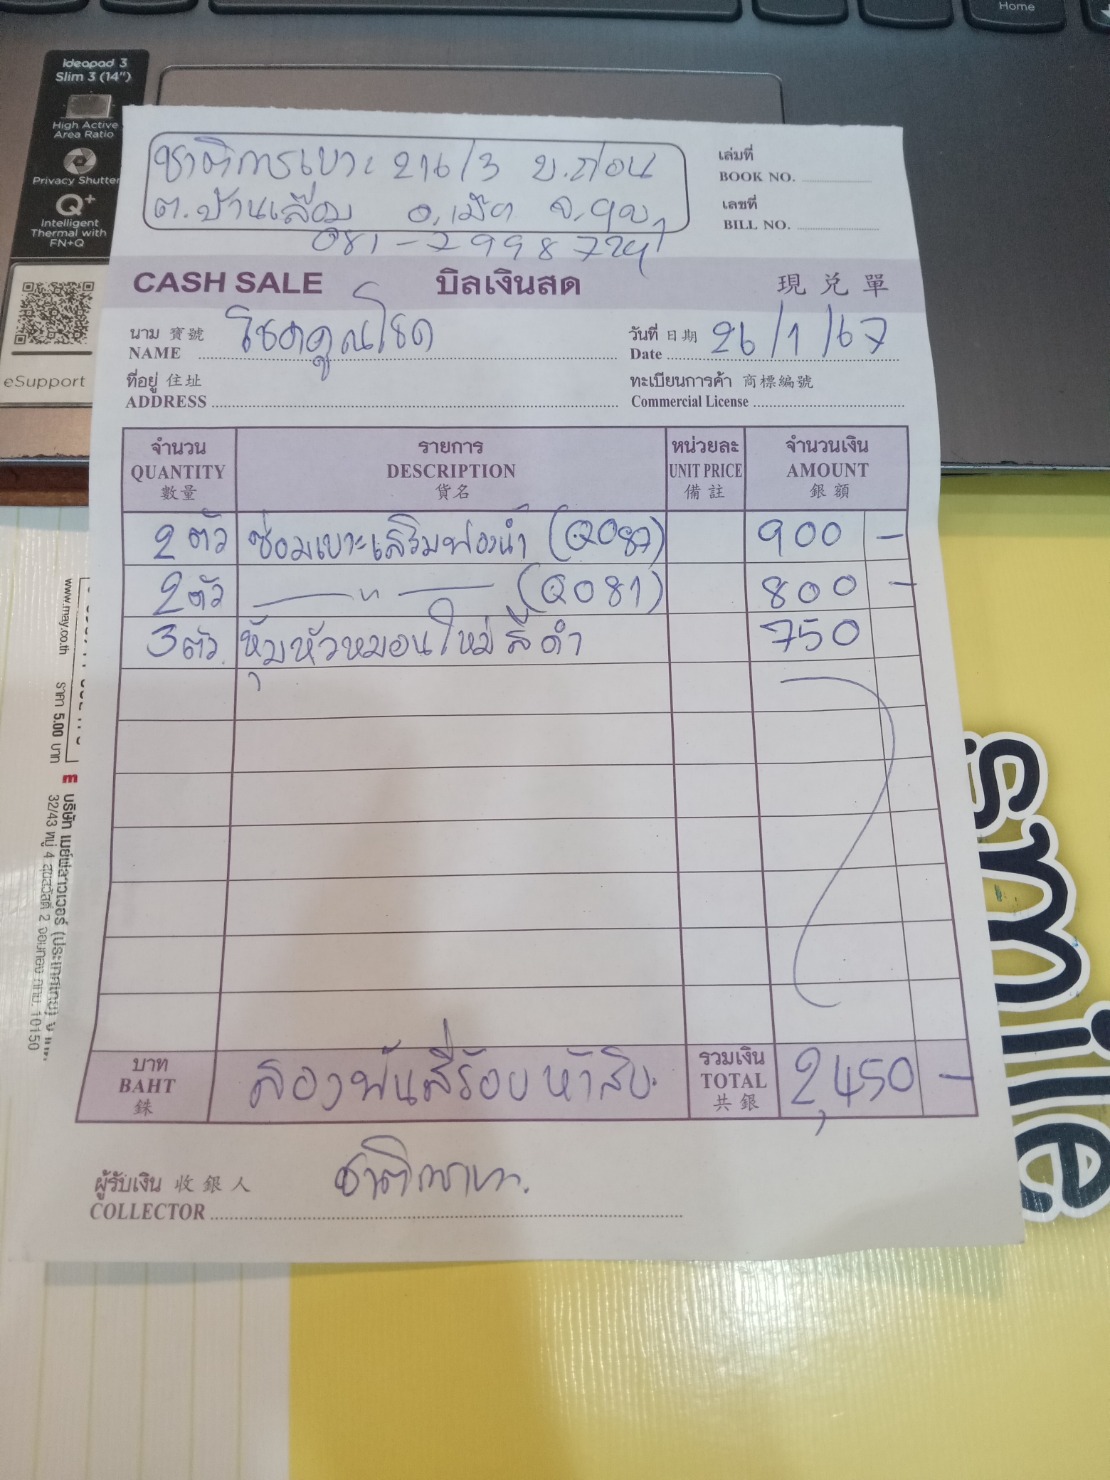 Home
Ideapad 3
Slim 3 (14")
High Active
Area Ratio
Privacy Shutter
Q+
Intelligent
Thermal with
FN+Q
eSupport
ชาติการเบาะ 216/3 บ.ถ่อน
ต.บ้านเลื่อม อ.เมือง
081-
เล่มที่
BOOK NO.
เลขที่
BILL NO.
CASH SALE บิลเงินสด 現兌單
นาม 寶號
NAME โชคคูณโชค
วันที่ 日期
Date 26/1/67
ที่อยู่ 住址
ADDRESS
ทะเบียนการค้า 商標編號
Commercial License
จำนวน รายการ หน่วยละ จำนวนเงิน
QUANTITY DESCRIPTION UNIT PRICE AMOUNT
數量 貨名 備註 銀額
2 ตัว ซ่อมเบาะเสริมฟองน้ำ (Q087) 900 -
2 ตัว —— " —— (Q081) 800 -
3 ตัว หุ้มหัวหมอนใหม่สีดำ 750
บาท
BAHT
銖
สองพันสี่ร้อยห้าสิบ.
รวมเงิน
TOTAL
共銀
2,450 -
ผู้รับเงิน 收銀人
COLLECTOR
www.may.co.th ราคา 5.00 บาท
32/43 หมู่ 4 จอมทอง กทม. 10150
smile